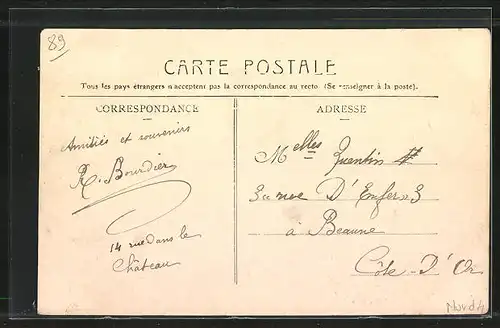 89
CARTE POSTALE
Tous les pays étrangers n'acceptent pas la correspondance au recto. (Se renseigner à la poste).
CORRESPONDANCE
ADRESSE
Amitiés et souvenirs
R. Bourdier
14 rue Dans le
Château
Melles Quentin
3 rue D'Enfer 3
à Beaune
Côte-D'Or